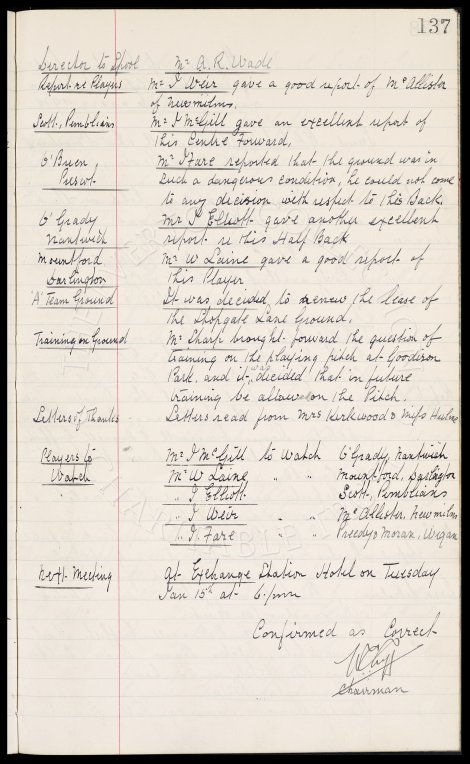 137
Director to Stoke Mr A. R. Wade
Report re Players Mr J Weir gave a good report of McAllister
of Newmilns.
Scott, Penblians Mr J McGill gave an excellent report of
this Centre Forward.
O'Brien, Mr Fare reported that the ground was in
Prescot such a dangerous condition, he could not come
to any decision with respect to this Back.
O'Grady Mr J Elliott gave another excellent
Nantwich report re this Half Back
Mountford Mr W Laine gave a good report of
Darlington this Player
'A' Team Ground It was decided, to renew the lease of
the Lopgate Lane Ground.
Training on Ground Mr Sharp brought forward the question of
training on the playing pitch at Goodison
Park, and it was decided that in future
training be allowed on the Pitch.
Letters of Thanks Letters read from Mrs Kirkwood & Miss
Players to Mr J McGill to watch O'Grady, Nantwich
Watch Mr W Laine " " Mountford, Darlington
" J Elliott Scott, Penblians
" J Weir " " McAllister, Newmilns
" Fare " " Preedy & Moran, Wigan
Next Meeting At Exchange Station Hotel on Tuesday
Jan 15th at 6. pm
Confirmed as Correct
Chairman